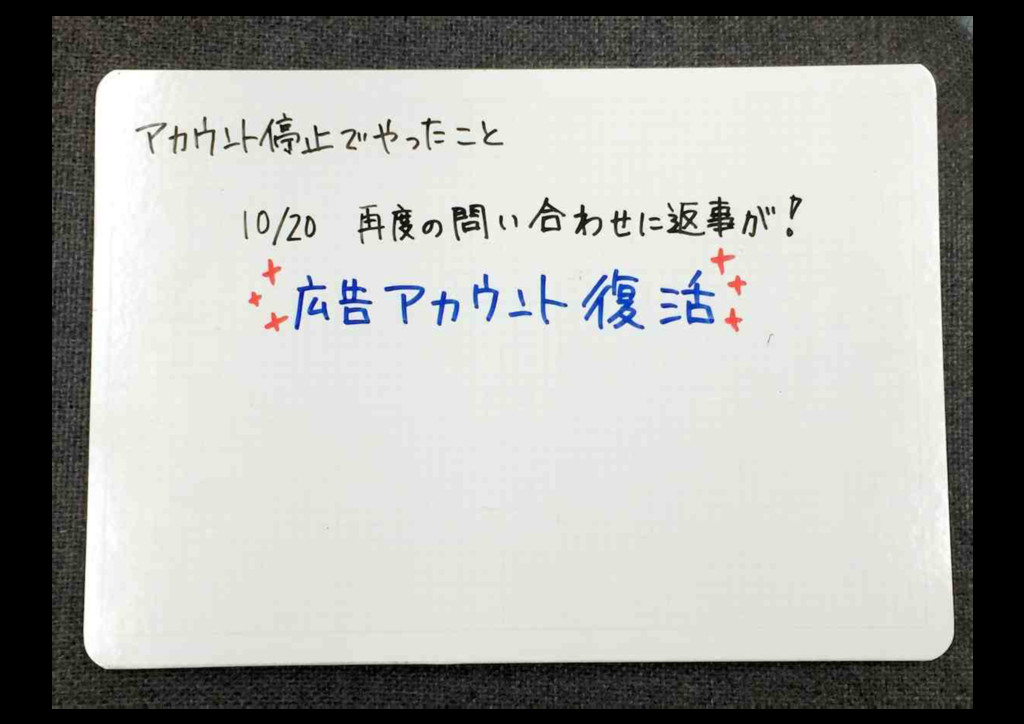 アカウント停止でやったこと
10/20 再度の問い合わせに返事が!
広告アカウント復活